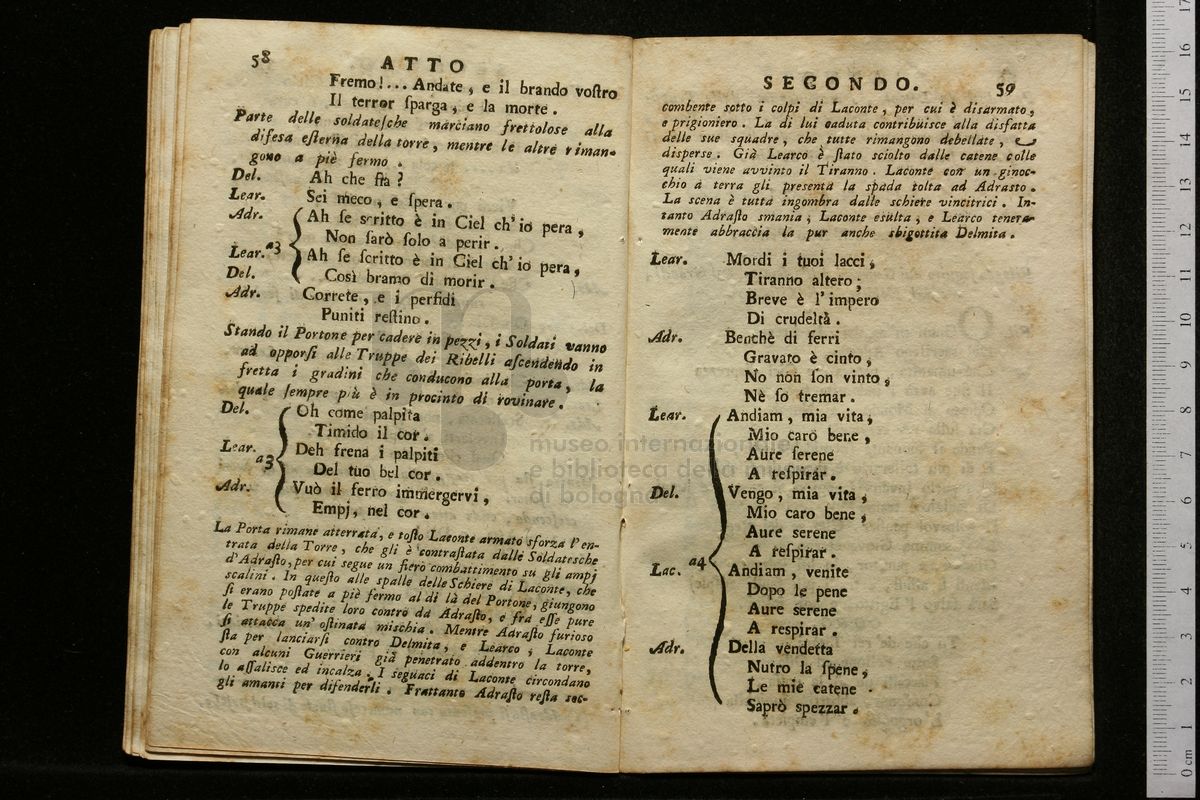 58
ATTO
Fremo!... Andate, e il brando voſtro
Il terror ſparga, e la morte.
Parte delle ſoldateſche marciano frettoloſe alla
difeſa eſterna della torre, mentre le altre riman-
gono a piè fermo.
Del. Ah che ſta?
Lear. Sei meco, e ſpera.
Adr. Ah ſe scritto è in Ciel ch'io pera,
Non ſarò ſolo a perir.
Lear. a3 Ah ſe ſcritto è in Ciel ch'io pera,
Del. Così bramo di morir.
Adr. Correte, e i perfidi
Puniti reſtino.
Stando il Portone per cadere in pezzi, i Soldati vanno
ad opporſi alle Truppe dei Ribelli aſcendendo in
fretta i gradini che conducono alla porta, la
quale ſempre più è in procinto di rovinare.
Del. Oh come palpita
Timido il cor.
Lear. a3 Deh frena i palpiti
Del tuo bel cor.
Adr. Vuò il ferro immergervi,
Empj, nel cor.
La Porta rimane atterrata, e toſto Laconte armato sforza l'en-
trata della Torre, che gli è contraſtata dalle Soldatesche
d'Adraſto, per cui segue un fiero combattimento su gli ampj
scalini. In queſto alle spalle delle Schiere di Laconte, che
ſi erano poſtate a piè fermo al di là del Portone, giungono
le Truppe spedite loro contro da Adraſto, e fra eſſe pure
ſi attacca un' oſtinata mischia. Mentre Adraſto furioso
ſta per lanciarſi contro Delmita, e Learco; Laconte
con alcuni Guerrieri già penetrato addentro la torre,
lo aſſalisce ed incalza. I seguaci di Laconte circondano
gli amanti per difenderli. Frattanto Adraſto reſta soc-
SECONDO.
59
combente sotto i colpi di Laconte, per cui è disarmato,
e prigioniero. La di lui caduta contribuisce alla disfatta
delle sue squadre, che tutte rimangono debellate, e
disperse. Già Learco è ſtato sciolto dalle catene colle
quali viene avvinto il Tiranno. Laconte con un ginoc-
chio a terra gli presenta la spada tolta ad Adrasto.
La scena è tutta ingombra dalle schiere vincitrici. In-
tanto Adraſto smania, Laconte esulta, e Learco tenera-
mente abbraccia la pur anche sbigottita Delmita.
Lear. Mordi i tuoi lacci,
Tiranno altero;
Breve è l'impero
Di crudeltà.
Adr. Benchè di ferri
Gravato è cinto,
No non ſon vinto,
Nè ſo tremar.
Lear. Andiam, mia vita,
Mio caro bene,
Aure ſerene
A reſpirar.
Del. Vengo, mia vita,
Mio caro bene,
Aure serene
A reſpirar.
Lac. a4 Andiam, venite
Dopo le pene
Aure serene
A respirar.
Adr. Della vendetta
Nutro la ſpene,
Le mie catene
Saprò spezzar.
museo internazionale
e biblioteca della musica
di bologna